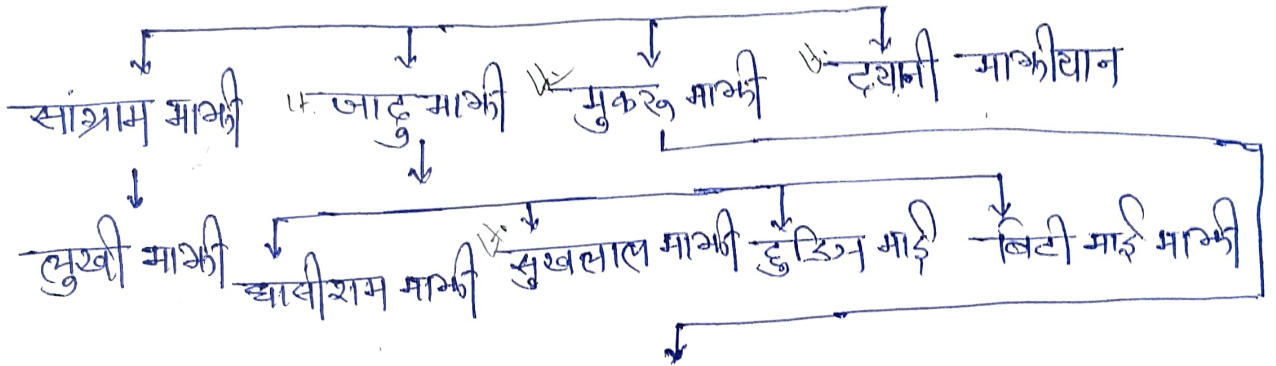 सांग्राम माझी जादु माझी मुकरू माझी दयानी माझीयान
लुखी माझी घासीराम माझी सुखलाल माझी माई बिटी माई माझी